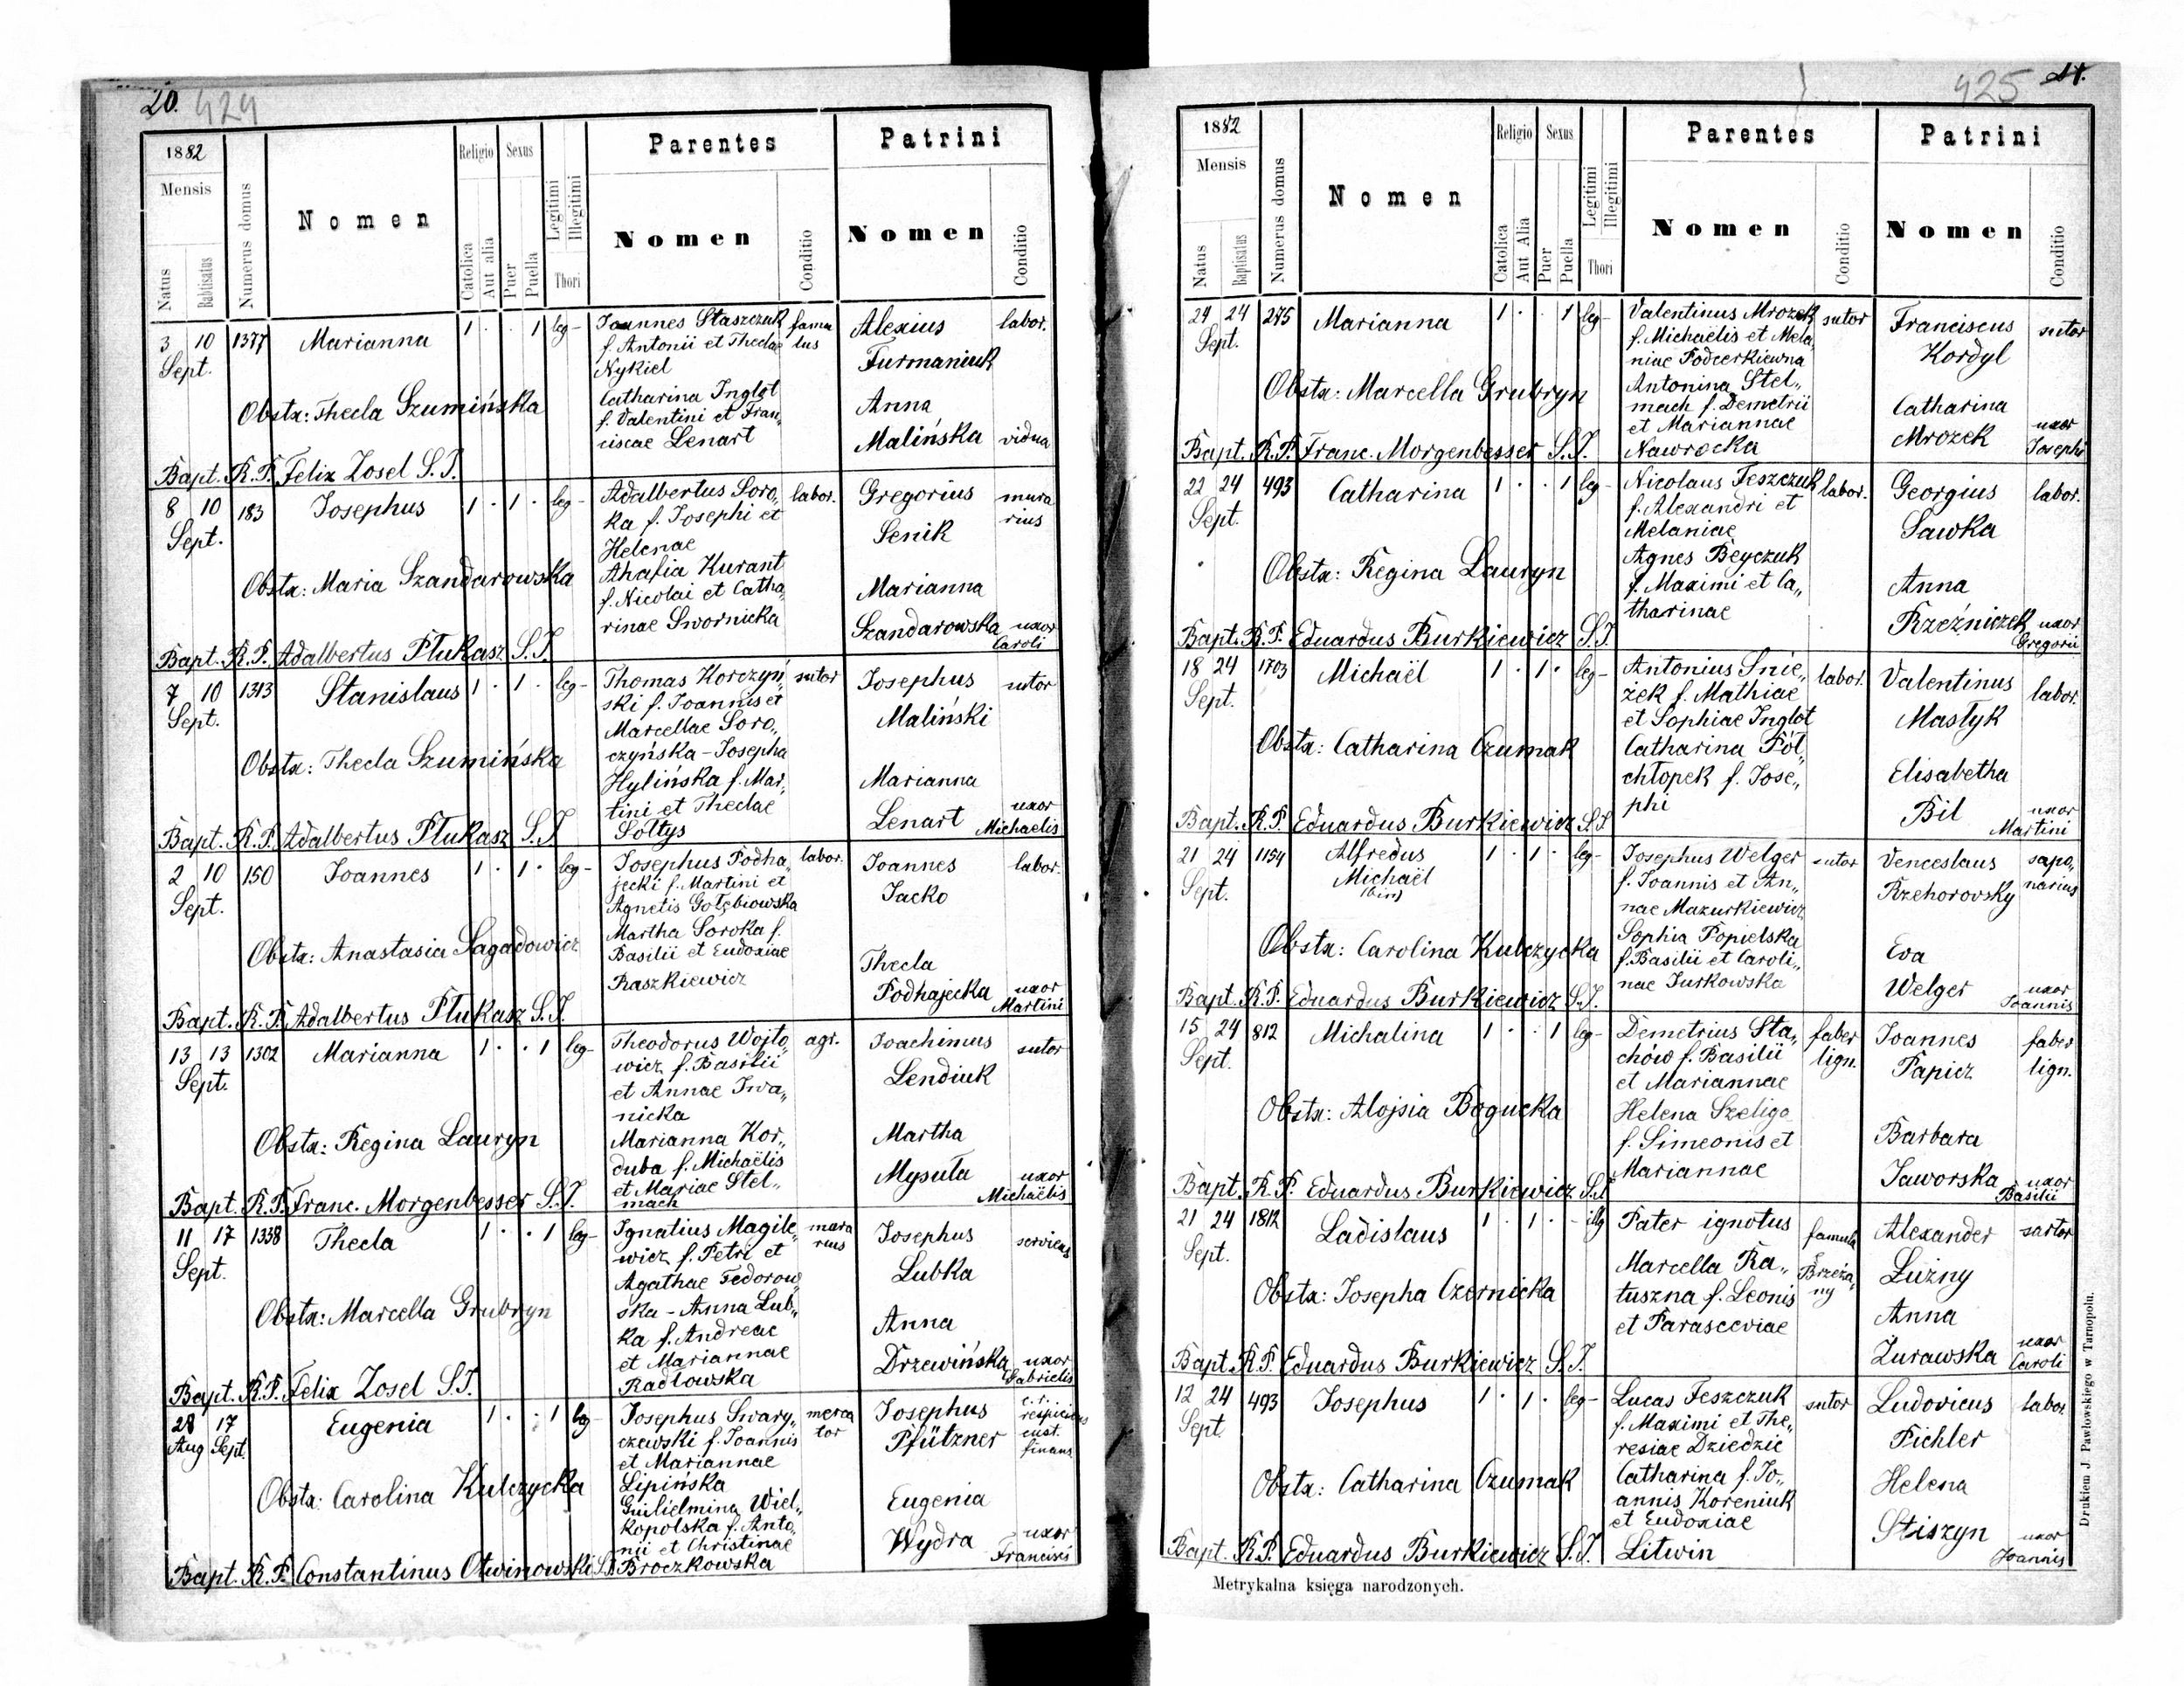 20. 424
1882
Mensis
Natus
Babtisatus
Numerus domus
Nomen
Religio
Catolica
Aut alia
Sexus
Puer
Puella
Legitimi
Illegitimi
Thori
Parentes
Nomen
Conditio
Patrini
Nomen
Conditio
3 10 1377 Marianna 1 . . 1 leg-
Sept.
Joannes Staszczuk famu
f. Antonii et Theclae lus
Nykiel
Catharina Inglot
f. Valentini et Fran„
ciscae Lenart
Alexius labor.
Furmaniuk
Anna
Malińska vidua
Obstx: Thecla Szumińska
Bapt. R.P. Felix Zosel S.J.
8 10 183 Josephus 1 . 1 . leg-
Sept.
Adalbertus Soro„ labor.
ka f. Josephi et
Helenae
Ahafia Kurant
f. Nicolai et Catha„
rinae Swornicka
Gregorius mura
Senik rius
Marianna
Szandarowska uxor
Caroli
Obstx: Maria Szandarowska
Bapt. R.P. Adalbertus Płukasz S.J.
7 10 1313 Stanislaus 1 . 1 . leg-
Sept.
Thomas Korczyń„ sutor
ski f. Joannis et
Marcellae Soro„
czyńska - Josepha
Hylińska f. Mar„
tini et Theclae
Sołtys
Josephus sutor
Maliński
Marianna
Lenart uxor
Michaelis
Obstx: Thecla Szumińska
Bapt. R.P. Adalbertus Płukasz S.J
2 10 150 Joannes 1 . 1 . leg-
Sept.
Josephus Podha„ labor.
jecki f. Martini et
Agnetis Gołębiowska
Martha Soroka f.
Basilii et Eudoxiae
Raszkiewicz
Joannes labor.
Jacko
Thecla
Podhajecka uxor
Martini
Obstx: Anastasia Sagadowicz
Bapt. R.P. Adalbertus Płukasz S.J.
13 13 1302 Marianna 1 . . 1 leg-
Sept.
Theodorus Wojto„ agr.
wicz f. Basilii
et Annae Iwa„
nicka
Marianna Kor„
duba f. Michaëlis
et Mariae Stel„
mach
Joachimus sutor
Lendiuk
Martha
Mysuła uxor
Michaëlis
Obstx: Regina Lauryn
Bapt. R.P. Franc. Morgenbesser S.J.
11 17 1338 Thecla 1 . . 1 leg-
Sept.
Ignatius Magile„ mura
wicz f. Petri et rius
Agathae Fedorow„
ska - Anna Lub„
ka f. Andreae
et Mariannae
Radłowska
Josephus serviens
Lubka
Anna
Drzewińska uxor
Gabrielis
Obstx: Marcella Grubryn
Bapt. R.P. Felix Zosel S.J.
28 17 Eugenia 1 . . 1 leg
Aug Sept.
Josephus Swary„ merca
czewski f. Joannis tor
et Mariannae
Lipińska
Guilielmina Wiel„
kopolska f. Anto„
nii et Christinae
Broczkowska
Josephus c. r.
Pfützner respiciens
cust.
finans
Eugenia
Wydra uxor
Francisci
Obstx: Carolina Kulczycka
Bapt. R.P. Constantinus Otwinowski S.J
425 21.
1882
Mensis
Natus
Baptisatus
Numerus domus
Nomen
Religio
Catolica
Aut Alia
Sexus
Puer
Puella
Legitimi
Illegitimi
Thori
Parentes
Nomen
Conditio
Patrini
Nomen
Conditio
24 24 275 Marianna 1 . . 1 leg-
Sept.
Valentinus Mrozek sutor
f. Michaëlis et Mela„
niae Podcerkiewna
Antonina Stel„
mach f. Demetrii
et Mariannae
Nawrocka
Franciscus sutor
Kordyl
Catharina
Mrozek uxor
Josephi
Obstx: Marcella Grubryn
Bapt. R.P. Franc. Morgenbesser S.J.
22 24 493 Catharina 1 . . 1 leg-
Sept.
Nicolaus Feszczuk labor.
f. Alexandri et
Melaniae
Agnes Beyczuk
f. Maximi et Ca„
tharinae
Georgius labor.
Sawka
Anna
Rzeźniczek uxor
Gregorii
Obstx: Regina Lauryn
Bapt. R.P. Eduardus Burkiewicz S.J.
18 24 1703 Michaël 1 . 1 . leg-
Sept.
Antonius Śnie„ labor.
żek f. Mathiae
et Sophiae Inglot
Catharina Pół„
chłopek f. Jose„
phi
Valentinus labor.
Mastyk
Elisabetha
Bil uxor
Martini
Obstx: Catharina Czumak
Bapt. R.P. Eduardus Burkiewicz S.J
21 24 1154 Alfredus 1 . 1 . leg-
Sept. Michaël
(bin)
Josephus Welger sutor
f. Joannis et An„
nae Mazurkiewicz
Sophia Popielska
f. Basilii et Caroli„
nae Jurkowska
Venceslaus sapo„
Rzehorovsky narius
Eva
Welger uxor
Joannis
Obstx: Carolina Kulczycka
Bapt. R.P. Eduardus Burkiewicz S.J.
15 24 812 Michalina 1 . . 1 leg-
Sept.
Demetrius Sta„ faber
chów f. Basilii lign.
et Mariannae
Helena Szeliga
f. Simeonis et
Mariannae
Joannes faber
Papicz lign.
Barbara
Jaworska uxor
Basilii
Obstx: Alojsia Bogucka
Bapt. R.P. Eduardus Burkiewicz S.J
21 24 1812 Ladislaus 1 . 1 . - illg
Sept.
Pater ignotus famula
Marcella Ra„ Brzeża„
tuszna f. Leonis ny
et Parasceviae
Alexander sartor
Luźny
Anna
Żurawska uxor
Caroli
Obstx: Josepha Czernicka
Bapt. R.P. Eduardus Burkiewicz S.J.
12 24 493 Josephus 1 . 1 . leg-
Sept
Lucas Feszczuk sutor
f. Maximi et The„
resiae Dziedzic
Catharina f. Jo„
annis Koreniuk
et Eudoxiae
Litwin
Ludovicus labor.
Pichler
Helena
Stiszyn uxor
Joannis
Obstx: Catharina Czumak
Bapt. R.P. Eduardus Burkiewicz S.J.
Metrykalna księga narodzonych.
Drukiem J. Pawłowskiego w Tarnopolu.